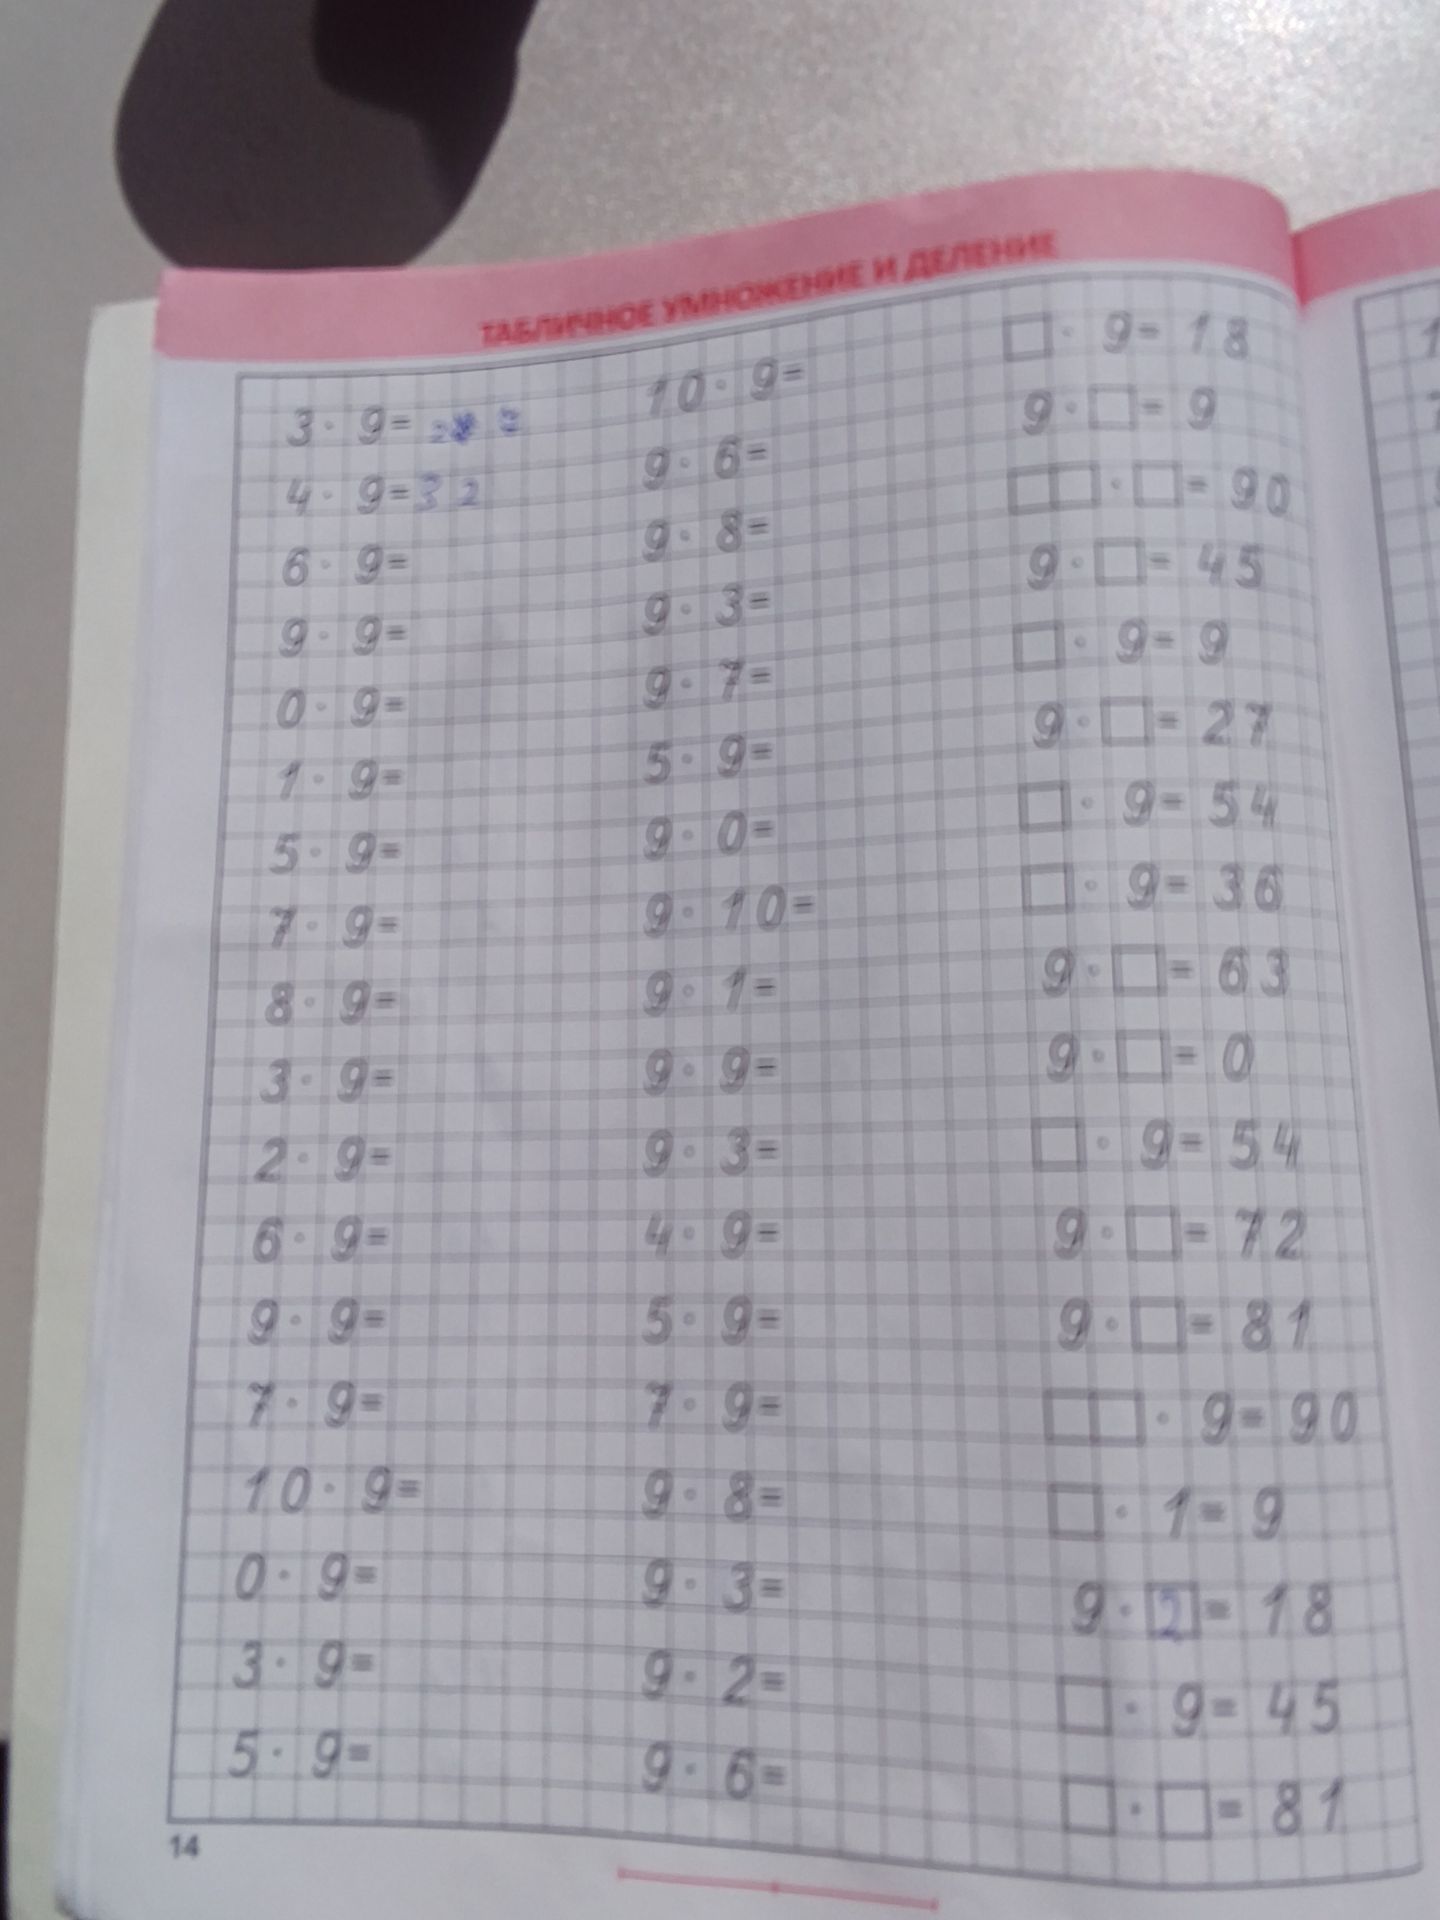 ТАБЛИЧНОЕ УМНОЖЕНИЕ И ДЕЛЕНИЕ
3 · 9 =
4 · 9 = 32
6 · 9 =
9 · 9 =
0 · 9 =
1 · 9 =
5 · 9 =
7 · 9 =
8 · 9 =
3 · 9 =
2 · 9 =
6 · 9 =
9 · 9 =
7 · 9 =
10 · 9 =
0 · 9 =
3 · 9 =
5 · 9 =
10 · 9 =
9 · 6 =
9 · 8 =
9 · 3 =
9 · 7 =
5 · 9 =
9 · 0 =
9 · 10 =
9 · 1 =
9 · 9 =
9 · 3 =
4 · 9 =
5 · 9 =
7 · 9 =
9 · 8 =
9 · 3 =
9 · 2 =
9 · 6 =
□ · 9 = 18
9 · □ = 9
□□ · □ = 90
9 · □ = 45
□ · 9 = 9
9 · □ = 27
□ · 9 = 54
□ · 9 = 36
9 · □ = 63
9 · □ = 0
□ · 9 = 54
9 · □ = 72
9 · □ = 81
□□ · 9 = 90
□ · 1 = 9
9 · 2 = 18
□ · 9 = 45
□ · □ = 81
14